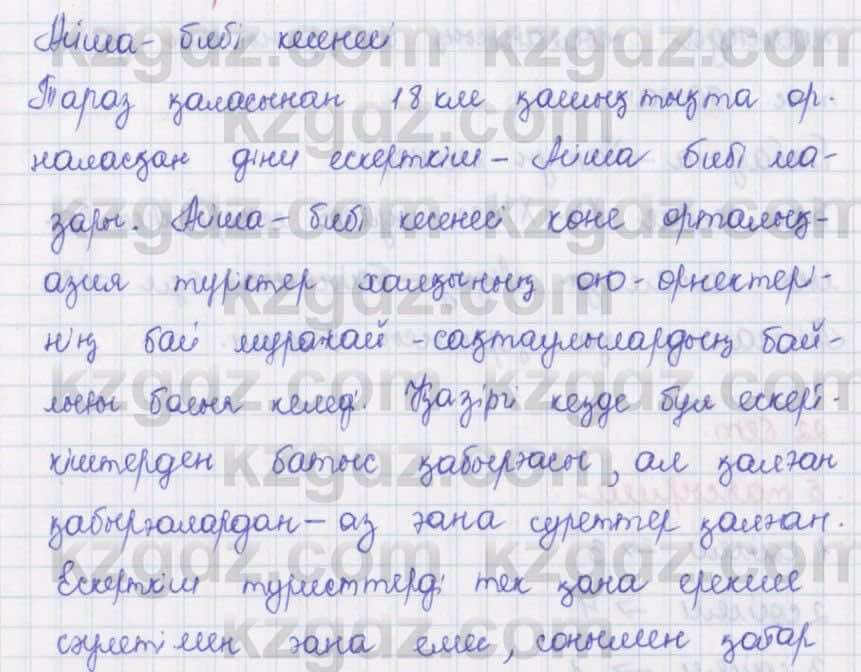 Айша-бибі кесенесі
Тараз қаласынан 18 км қашықтықта ор-
наласқан діни ескерткіш – Айша бибі ма-
зары. Айша-бибі кесенесі көне орталық-
азия түріктер халқының ою-өрнектері-
нің бай мұрахай-сақтаулылардың бай-
лығы болып келеді. Қазіргі кезде бұл ескері-
кіштерден батыс қабырғасы, ал қалған
қабырғалардан – аз ғана суреттер қалған.
Ескерткіш туристтерді тек қана ерекше
сәулетімен ғана емес, сонымен қабар
kzgdz.com